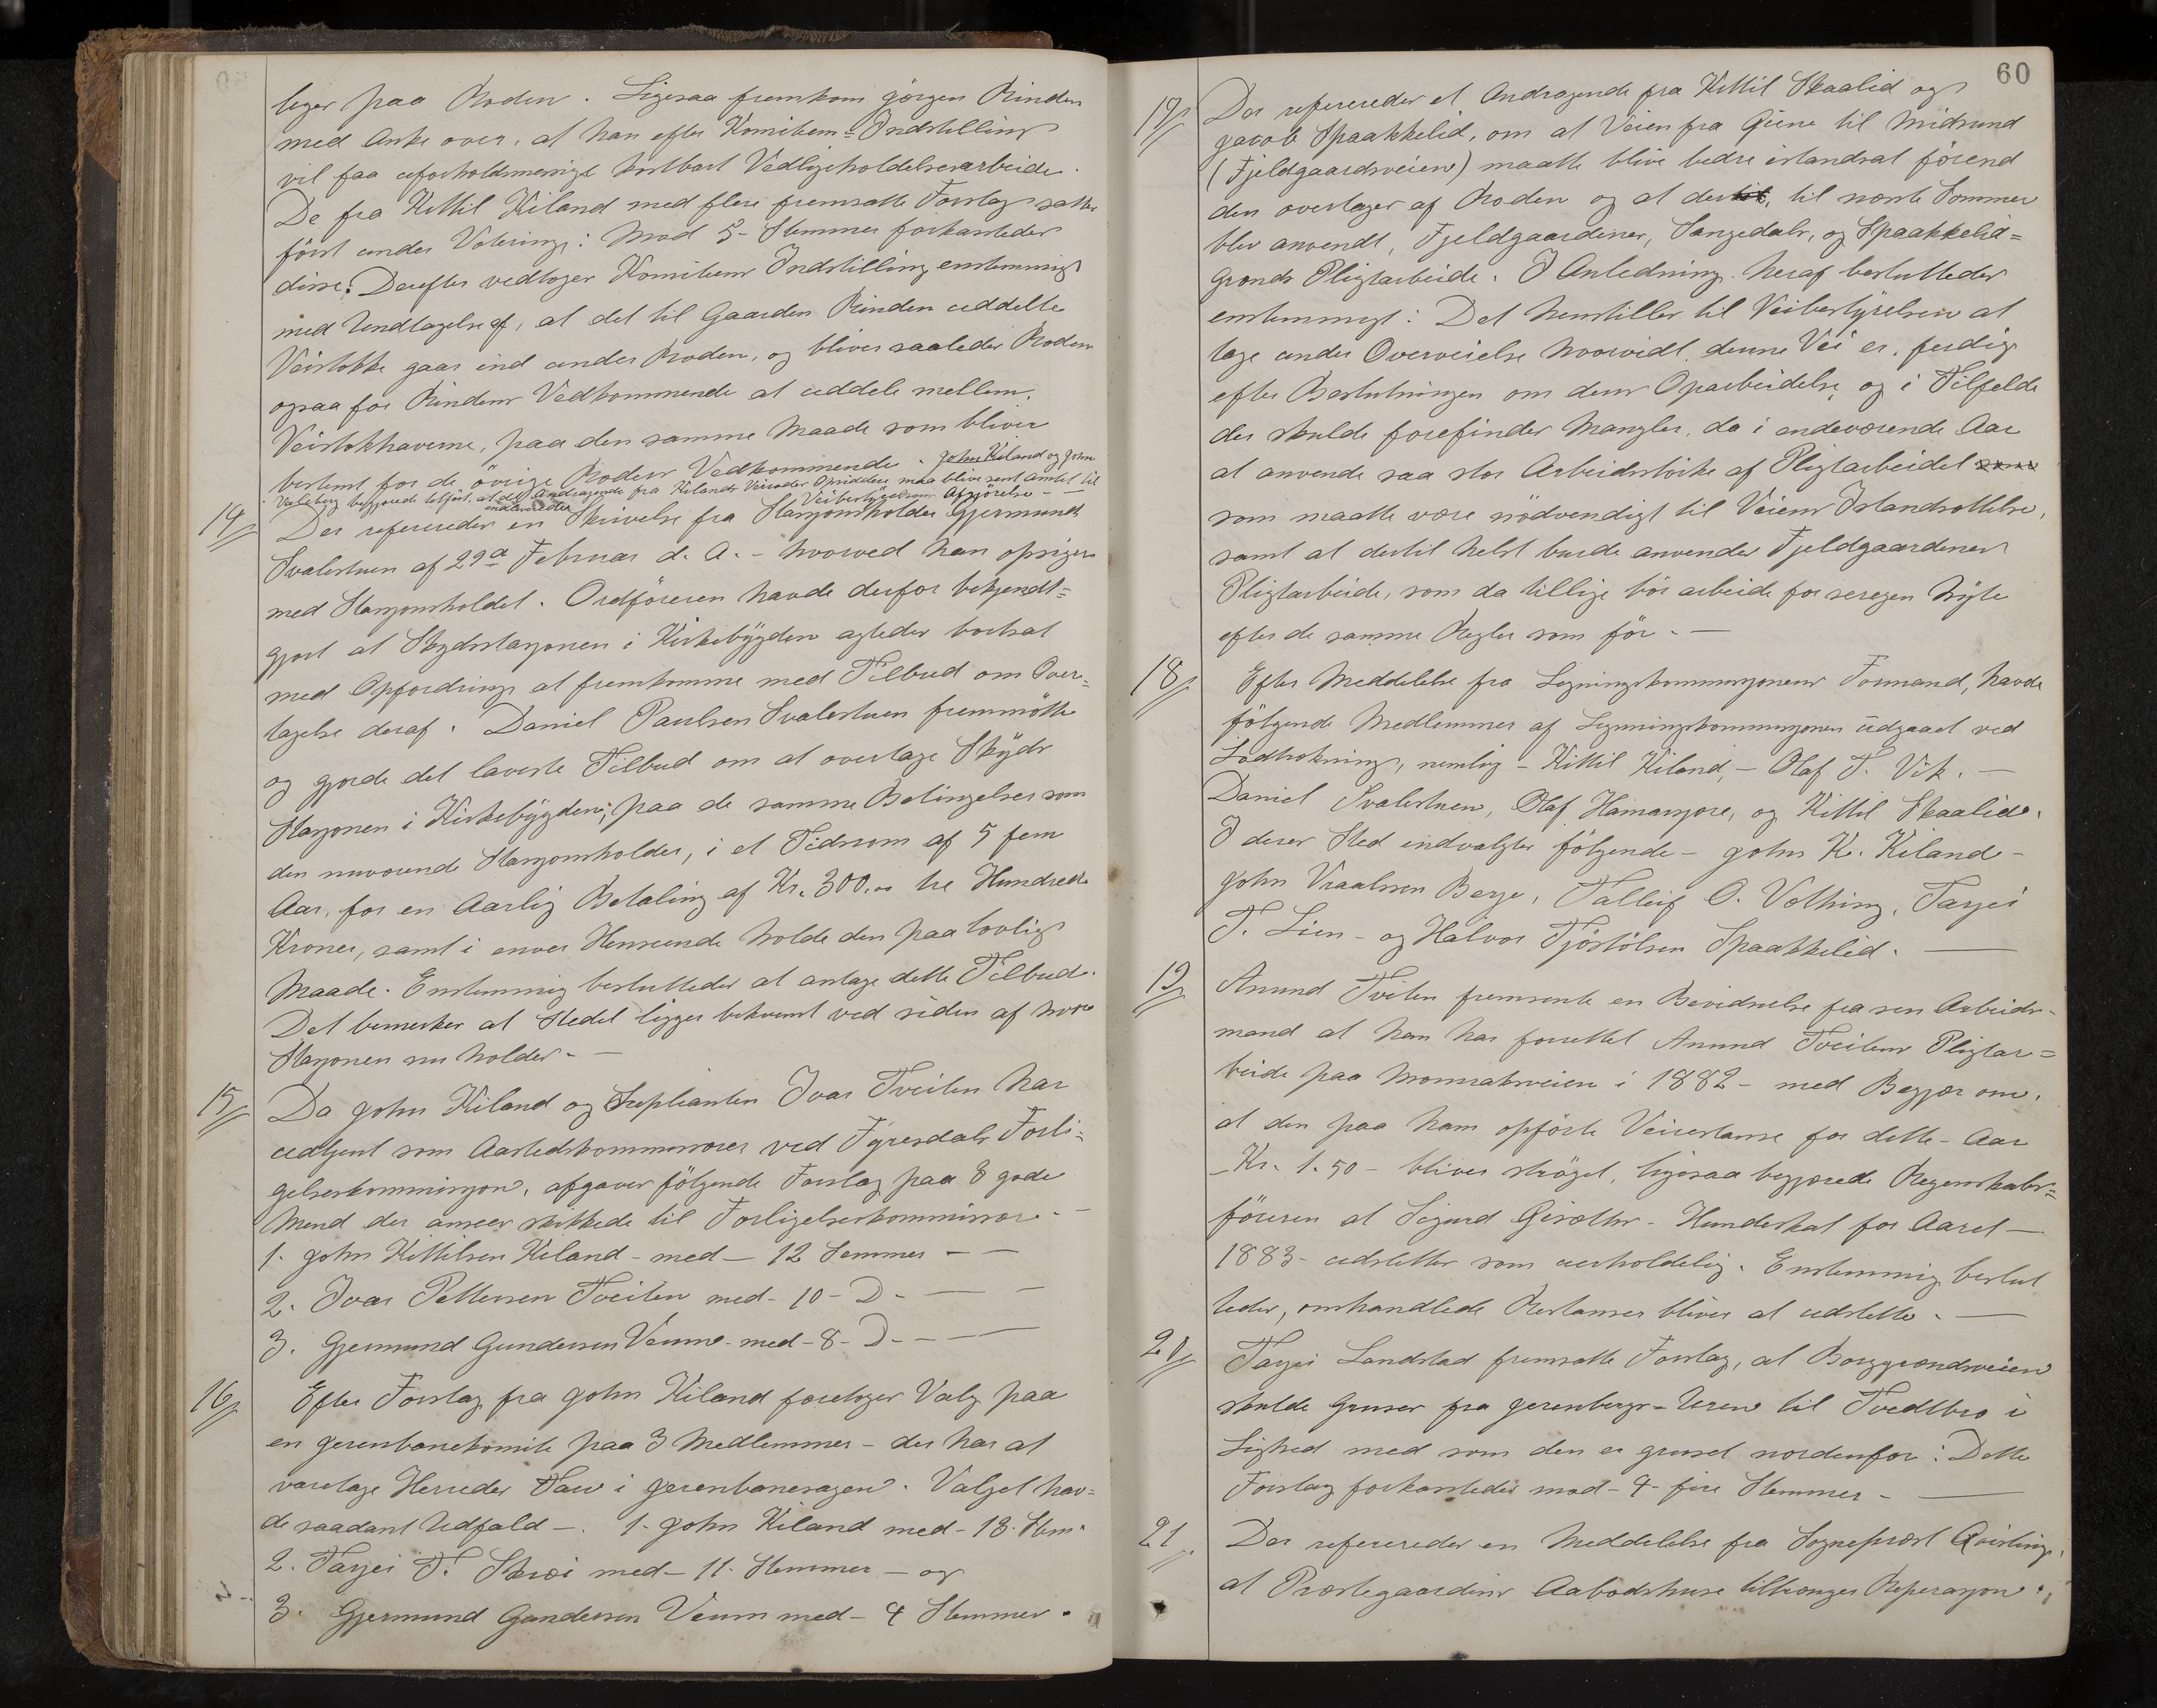 leger paa Roden. Ligesaa fremkom Jørgen Rinden
med Anke over, at han efter Komiteens Indstilling
vil faa uforholdsmæssigt kostbart Vedligeholdelsesarbeide.
De fra Kittil Kiland med flere fremsatte Forslag sattes
först under Votering: Mod 5 Stemmer forkastedes
disse. Derefter vedtoges Komiteens Indstilling enstemmigt
med Undtagelse af, at det til Gaarden Rinden uddelte
Veistokke gaar ind under Roden, og bliver saaledes Roden
ogsaa for Rindens Vedkommende at uddele mellem
Veistokhaverne, paa den samme Maade som bliver
bestemt for de övrige Roders Vedkommende. John Kiland og John
Veiberg begjærede tilført, at det Andragende fra Kilands Veirodes Opsiddere maa blive sent Amtet til
endvidere Veibestyrelsens Afgjörelse. —
14/ Der refereredes en Skrivelse fra Stasjonsholder Gjermund
Svalestuen af 29de Februar d. A. – hvorved han opsiger
med Stasjonsholdet. Ordföreren havde derfor bekjendt=
gjort at Skydsstasjonen i Kirkebÿgden agtedes bortsat
med Opfordring at fremkomme med Tilbud om Over=
tagelse deraf. Daniel Paulsen Svalestuen fremmötte
og gjorde det laveste Tilbud om at overtage Skÿds
Stasjonen i Kirkebÿgden, paa de samme Betingelser som
den nuværende Stasjonsholder, i et Tidsrom af 5 fem
Aar, for en Aarlig Betaling af Kr. 300.00 tre Hundrede
Kroner, samt i enver Henseende holde den paa lovlig
Maade. Enstemmig besluttedes at antage dette Tilbud.
Det bemerkes at Stedet ligger bekvemt ved siden af hvor
Stasjonen nu holdes. —
15/ Da John Kiland og Supleanten Ivar Tveiten har
udtjent som Aastedskommissærer ved Fyresdals Forli=
gelseskommisjon, afgaves fölgende Forslag paa 3 gode
Mend der ansees skikkede til Forligelseskommissære. —
1. John Kittilsen Kiland – med – 12 Stemmer — —
2. Ivar Pettersen Tveiten med – 10 – D — —
3. Gjermund Gundersen Veum – med – 8 – D — —
16/ Efter Forslag fra John Kiland foretoges Valg paa
en Jernbanekomite paa 3 Medlemmer – der har at
varetage Herredes Tarv i Jernbanesagen. Valget hav=
de saadant Udfald –. 1. John Kiland med – 13. Stem.
2. Tarjei T. Skræi med – 11. Stemmer – og
3. Gjermund Gundersen Veum med – 4 Stemmer.
60
17/ Der refereredes et Andragende fra Kittil Skaalid og
Jacob Spaakkelid, om at Veien fra Giene til Midsund
(Fjeldgaardsveien) maatte blive bedre istandsat förend
den overtages af Roden og at dertil, til næste Sommer
blev anvendt, Fjeldgaardenes, Sangedals, og Spaakkelid=
grends Pligtarbeide. I Anledning heraf besluttedes
enstemmigt: Det henstilles til Veibestÿrelsen at
tage under Overveielse hvorvidt denne Vei er ferdig
efter Beslutningen om dens Oparbeidelse, og i Tilfelde
der skulde forefindes Mangler, da i indeværende Aar
at anvende saa stor Arbeidsstörke af Pligtarbeidet
som maatte være nödvendigt til Veiens Istandsættelse,
samt at dertil helst burde anvendes Fjeldgaardenes
Pligtarbeide, som da tillige bör arbeide for seregen Hÿte
efter de samme Regler som för. —
18/ Efter Meddelelse fra Ligningskommisjonens Formand, havde
fölgende Medlemmer af Ligningskommisjonen udgaaet ved
Lodtrekning, nemlig – Kittil Kiland, – Olaf T. Vik. —
Daniel Svalestuen, Olaf Hamaasgore, og Kittil Skaalid.
I deres Sted indvalgtes fölgende – John K. Kiland –
John Vraalsen Berge, Talleif O. Vething, Tarjei
T. Lien – og Halvor Tjöstölsen Spaakkelid. —
19/ Anund Tveiten fremsente en Bevidnelse fra sen Arbeids-
mand at han har forrettet Anund Tveitens Pligtar=
beide paa Momrakveien i 1882 – med Begjær om,
at den paa ham opförte Veirestanse for dette – Aar
– Kr. 1.50 – bliver ströget, ligesaa begjærede Regnskabs=
föreren at Sigurd Girætters – Hundeskat for Aaret –
1883 – udslettes som uerholdelig. Enstemmig beslut
tedes, omhandlede Restanser bliver at udslette. —
20/ Tarjei Landstad fremsatte Forslag, at Borggrendsveien
skulde Gruses fra Jerenberg-Uren til Tvedtbro i
Lighed med som den er gruset nordenfor: Dette
Forslag forkastedes mod – 4 – fire Stemmer – —
21/ Der refereredes en Meddelelse fra Sogneprest Qvisling,
at Præstegaardens Aabodshuse tiltrænger Reperasjon.